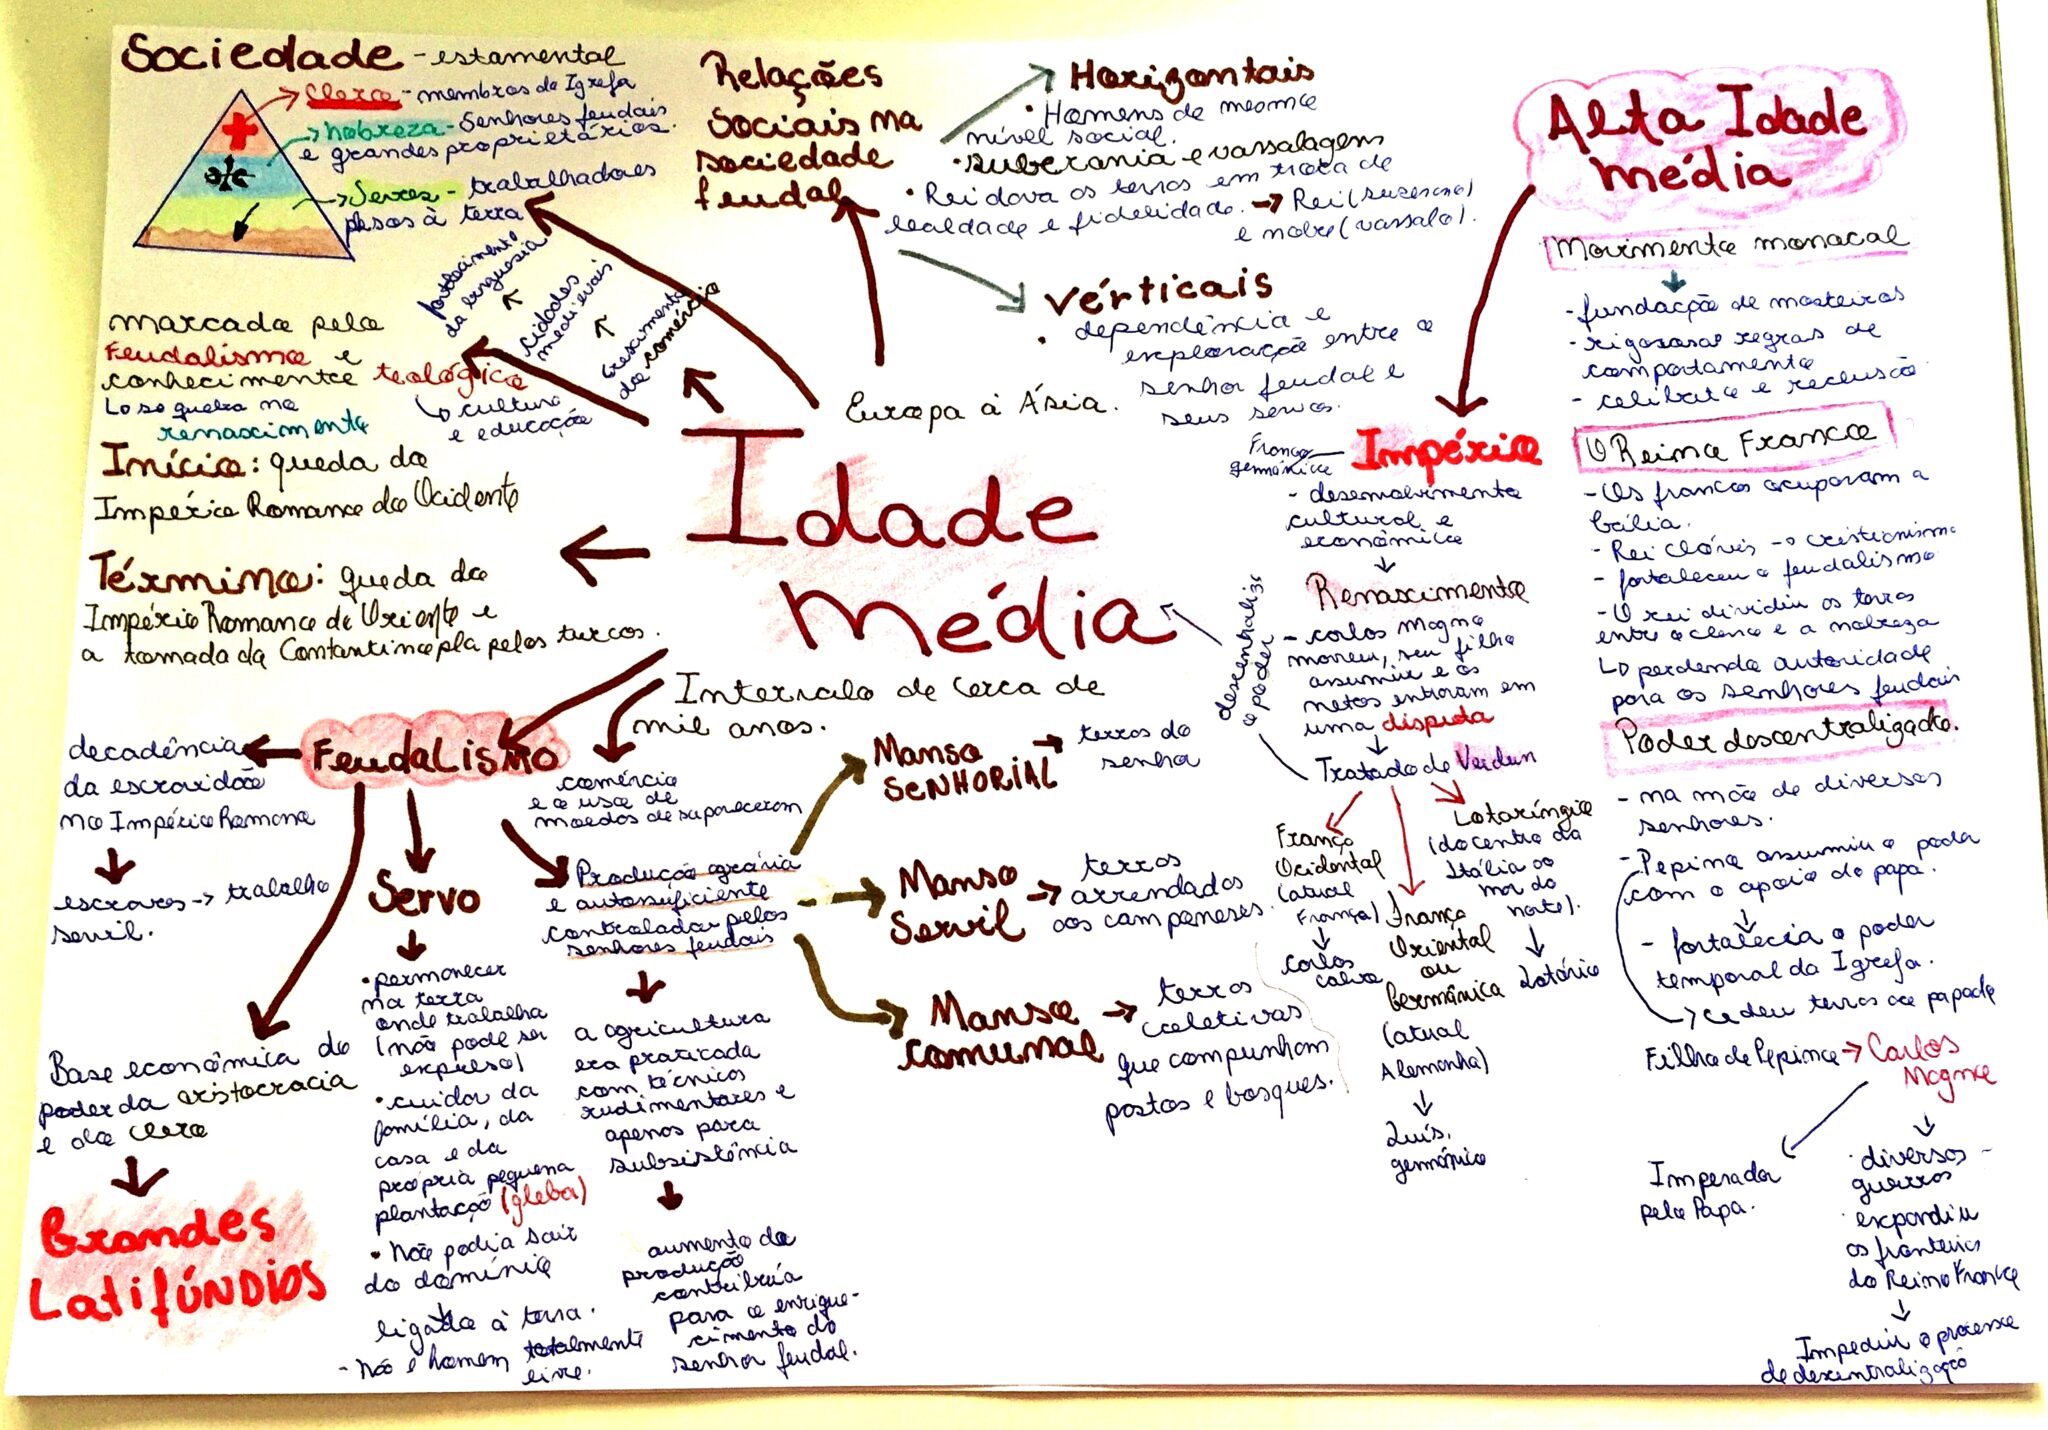 Sociedade - estamental
Clero - membros da Igreja
Nobreza - Senhores feudais
e grandes proprietários.
Servos - trabalhadores
presos à terra
fortalecimento
da burguesia
cidades
medievais
crescimento
do comércio
marcada pelo
Feudalismo e
conhecimento teológico
Lo se quebra no
renascimento
cultura
e educação
Início: queda do
Império Romano do Ocidente
Término: queda do
Império Romano do Oriente e
a tomada da Contantinopla pelos turcos.
Idade
Média
Intervalo de cerca de
mil anos.
Europa à Ásia.
Relações
Sociais na
sociedade
feudal
Horizontais
• Homens de mesmo
nível social.
• suberania e vassalagem
• Rei dava as terras em troca de
lealdade e fidelidade. → Rei (suserano)
e nobre (vassalo).
Vérticais
• dependência e
exploração entre o
senhor feudal e
seus servos.
Feudalismo
decadência
da escravidão
no Império Romano
escravos → trabalho
servil.
Base econômica do
poder da aristocracia
e do clero
Grandes
Latifúndios
Servo
• permanecer
na terra
onde trabalha
(não pode ser
expulso)
• cuidar da
família, da
casa e da
própria pequena
plantação (gleba)
• Não podia sair
do domínio
ligado à terra.
- Não é homem totalmente
livre.
comércio
e o uso de
moedas desapareceram
Produção agrária
e autosuficiente
controladas pelos
senhores feudais
a agricultura
era praticada
com técnicas
rudimentares e
apenas para
subsistência
aumento da
produção
contribuía
para o enrique-
cimento do
senhor feudal.
Manso
SENHORIAL → terras do
senhor
Manso
Servil → terras
arrendadas
aos camponeses.
Manso
comunal → terras
coletivas
que compunham
pastos e bosques.
Alta Idade
média
Império
Franco
germânico
- desenvolvimento
cultural e
econômico
Renascimento
- carlos magno
morreu, seu filho
assumiu e os
netos entraram em
uma disputa
Tratado de Verdun
desentraliza
o poder
França
Ocidental
(atual
França)
carlos
calvo
França
Oriental
ou
Germânica
(atual
Alemanha)
Luís,
germânico
Lotaríngia
(do centro da
Itália ao
mar do
norte).
Lotário
Movimento monacal
- fundação de mosteiros
- rigorosas regras de
comportamento
- celibato e reclusão
O Reino Franco
- Os francos ocuparam a
Gália.
- Rei Clóvis → cristianismo
- fortaleceu o feudalismo
- O rei dividiu as terras
entre o clero e a nobreza
Lo perdendo autoridade
para os senhores feudais
Poder descentralizado.
- na mão de diversos
senhores.
- Pepino assumiu o poder
com o apoio do papa.
- fortalecia o poder
temporal da Igreja.
→ cedeu terras ao papado
Filho de Pepino → Carlos
Magno
Imperador
pelo Papa.
diversas
guerras
expandiu
as fronteiras
do Reino Franco
Impediu o processo
de descentralização